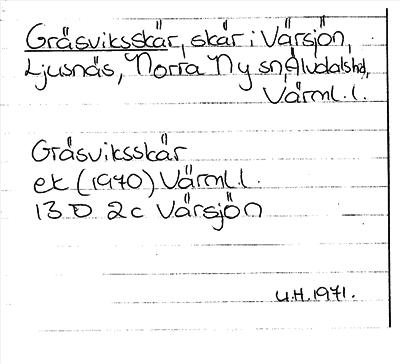 Gräsviksskär, skär i Värsjön,
Ljusnäs, Norra Ny sn, Älvdalshd,
Värml. l.
Gräsviksskär
ek (1970) Värml l.
13 D 2c Värsjön
U.H. 1971.